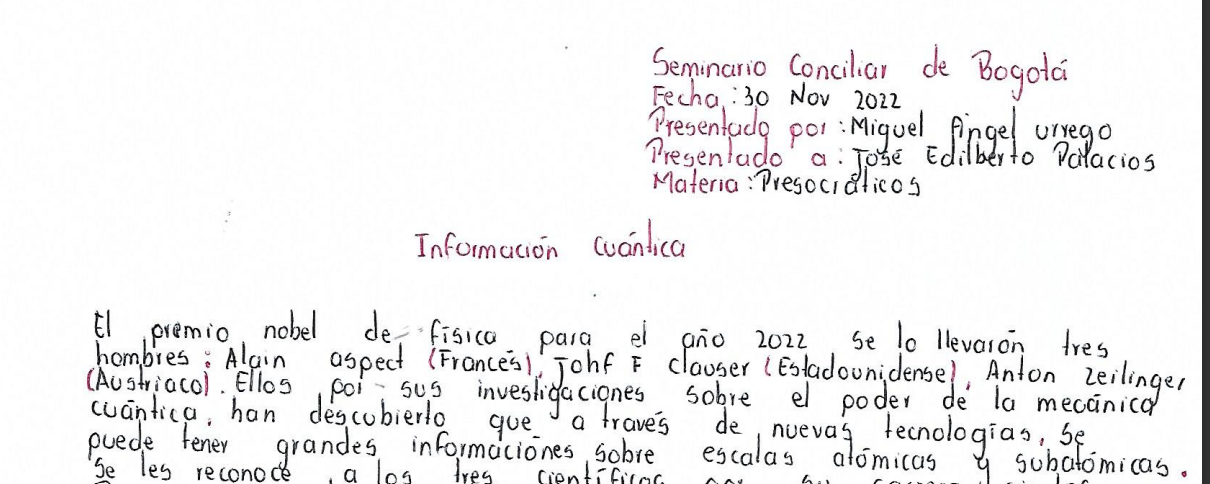 Seminario Conciliar de Bogotá
Fecha: 30 Nov 2022
Presentado por: Miguel Ángel urrego
Presentado a: José Edilberto Palacios
Materia: Presocráticos
Información cuántica
El premio nobel de física para el año 2022 se lo llevarón tres
hombres: Alain aspect (Francés), Johf F clauser (Estadounidense), Anton zeilinger
(Austriaco). Ellos por sus investigaciones sobre el poder de la mecánica
cuántica, han descubierto que a través de nuevas tecnologías, se
puede tener grandes informaciónes sobre escalas atómicas y subatómicas.
Se les reconoce, a los tres científicos por su